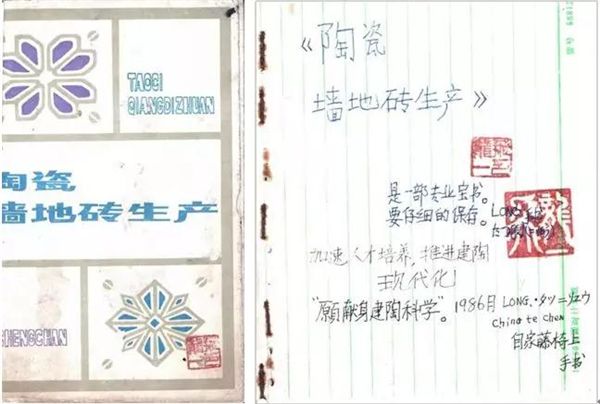 TAOCI
QIANGDIZHUAN
陶瓷
墙地砖生产
SHENGCHAN
《陶瓷
墙地砖生产》
是一部专业宝书。
要仔细的保存。LONG
加速人才培养，推进建陶
现代化
"愿献身建陶科学"。1986月 LONG.
China te chen
自家藤椅上
手书